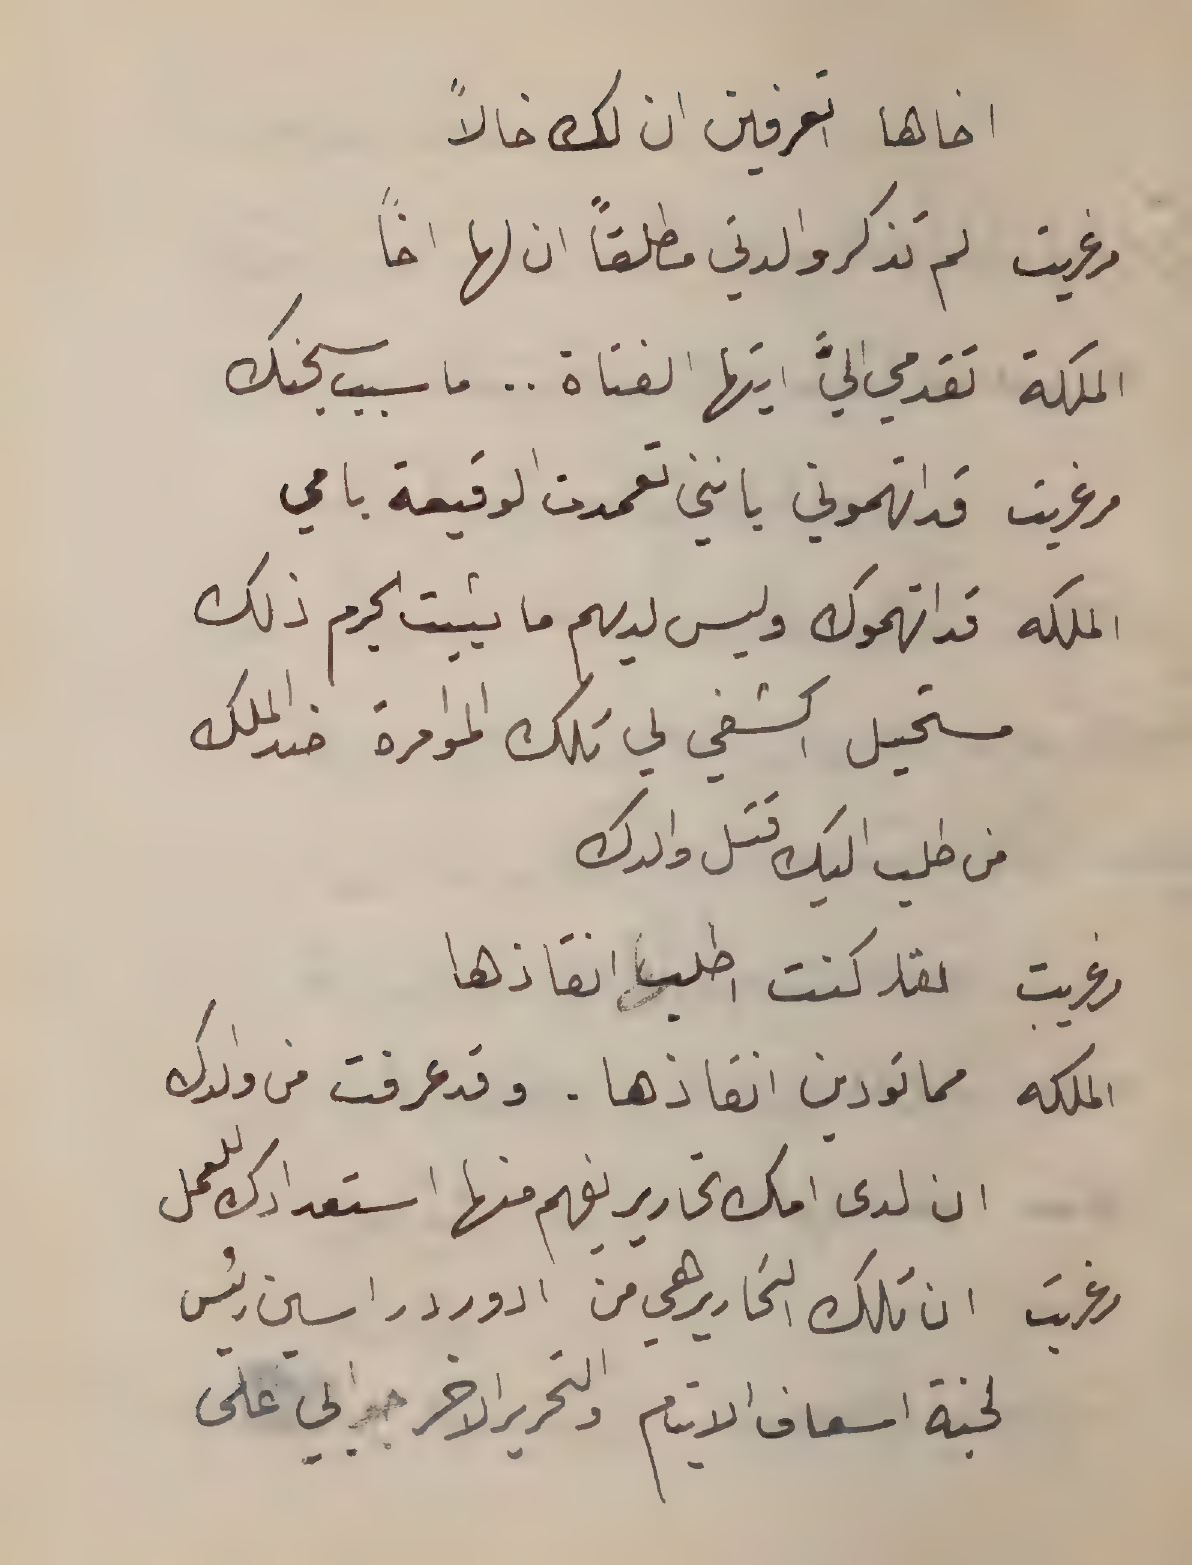 اخاها اتعرفين ان لك خالاً
مرغريت لم تذكر والدتي مطلقاً ان لها اخاً
الملكة تقدمي اليَّ ايتها الفتاة .. ما سبب سجنك
مرغريت قد اتهموني بانني تعمدت الوقيعة بامي
الملكه قد اتهموك وليس لديهم ما يثبت الجرم ذلك
مستحيل اكشفي لي تلك المؤامرة ضد الملك
من طلب اليك قتل والدك
مرغريت لقد كنت اطلب انقاذها
الملكه مما تودين انقاذها . وقد عرفت من والدك
ان لدى امك تحارير يفهم منها استعدادك للعمل
مرغريت ان تلك التحارير هي من ادوردراسين رئيس
لجنة اسعاف الايتام والتحرير الاخر جوابي على